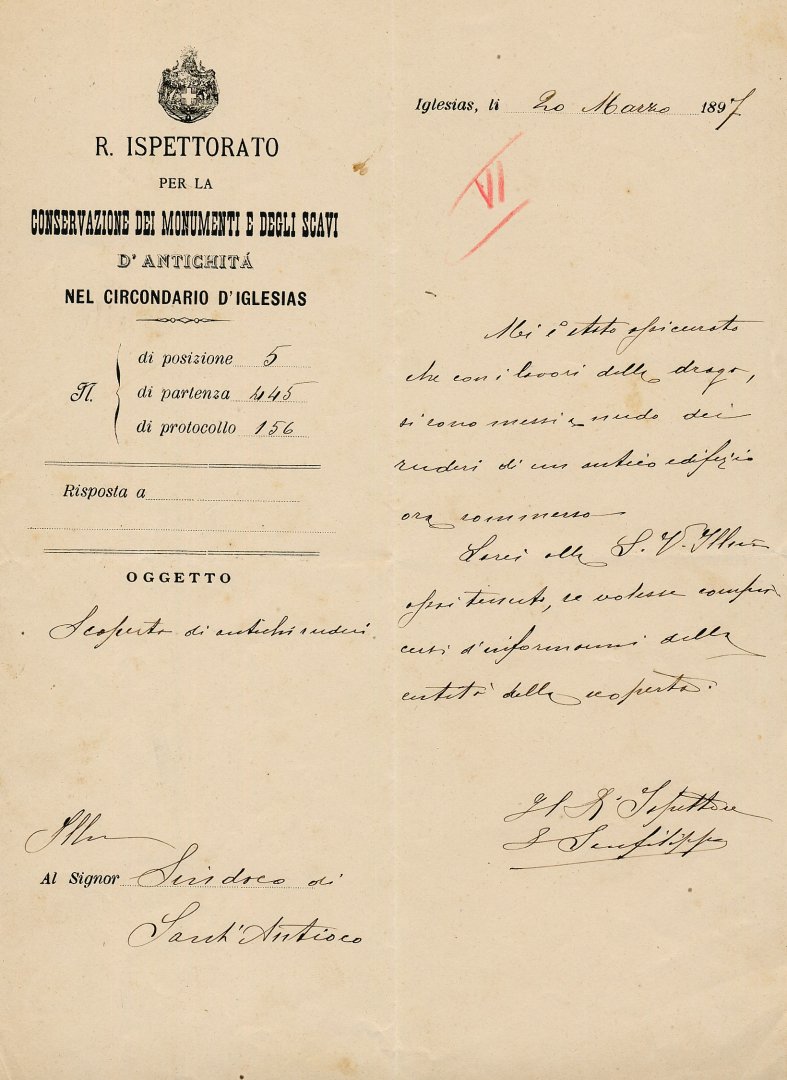 R. ISPETTORATO
PER LA
CONSERVAZIONE DEI MONUMENTI E DEGLI SCAVI
D'ANTICHITÁ
NEL CIRCONDARIO D'IGLESIAS
N.
di posizione 5
di partenza 445
di protocollo 156
Risposta a
OGGETTO
Scoperta di antichi ruderi
Illmo
Al Signor Sindaco di
Sant'Antioco
Iglesias, li 20 Marzo 1897
VI
Mi è stato assicurato
che con i lavori della draga,
si sono messi a nudo dei
ruderi di un antico edifizio
ora sommerso
Sarei alla S. V. Illma
assai tenuto, se volesse compia
cersi d'informarmi della
entità della scoperta.
Il R° Ispettore
Sanfilippo